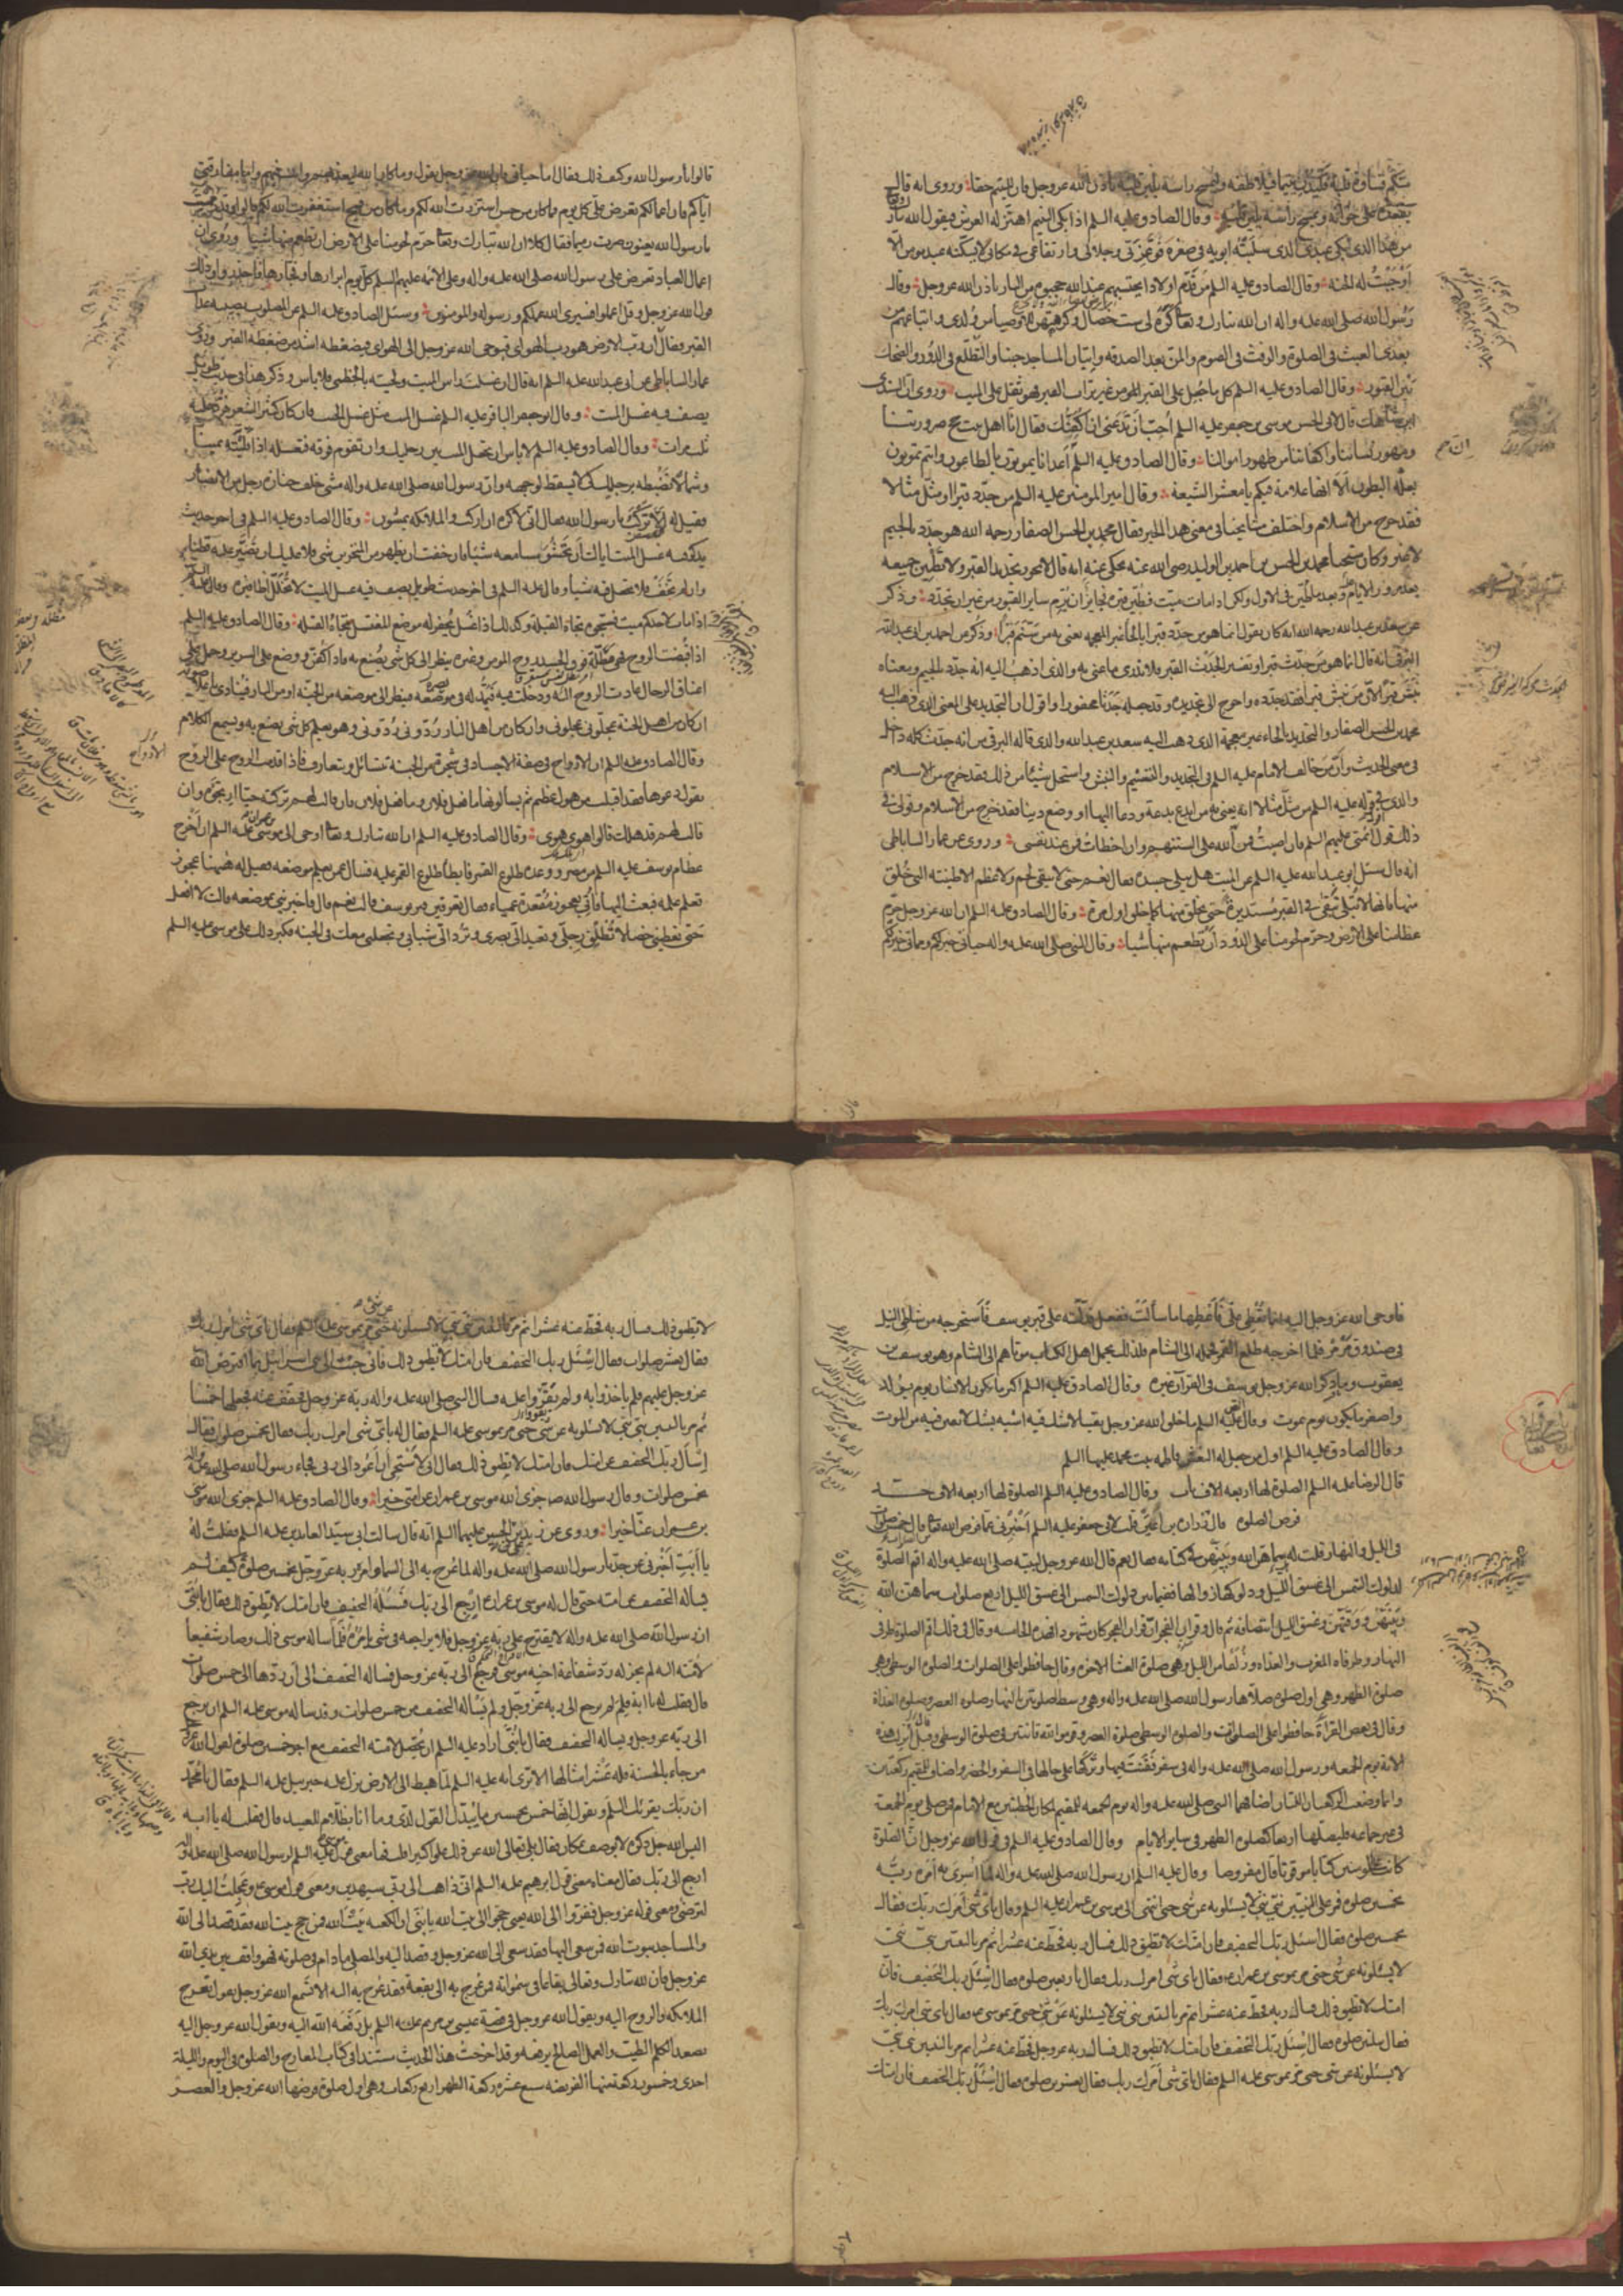 منكم قساوة قلبه فليدن يتيما فيلاطفه وليمسح راسه يلين قلبه باذن الله عز وجل فان لليتيم حقا وروى انه قال
يقعده على خوانه ويمسح راسه يلين قلبه وقال الصادق عليه السلم اذا بكى اليتيم اهتز له العرش فيقول الله تبارك وتعالى
من هذا الذى ابكى عبدى الذى سلبته ابويه فى صغره فوعزتى وجلالى وارتفاعى فى مكانى لا يسكته عبد مومن الا
اوجبت له الجنة وقال الصادق عليه السلم من قدم اولادا يحتسبهم عند الله حجبوه من النار باذن الله عز وجل وقال
رسول الله صلى الله عليه واله ان الله تبارك وتعالى كره لى ست خصال وكرهتهن للاوصياء من ولدى واتباعهم من
بعدى العبث فى الصلوة والرفث فى الصوم والمن بعد الصدقه واتيان المساجد جنبا والتطلع فى الدور والضحك
بين القبور وقال الصادق عليه السلم كل ما جعل على القبر من غير تراب القبر فهو ثقل على الميت وروى ان السندى
ابن شاهك قال لابى الحسن موسى بن جعفر عليه السلم احب ان تدعنى ان اكفنك فقال انا اهل بيت حج صرورتنا
ومهور نسائنا واكفاننا من طهور اموالنا وقال الصادق عليه السلم اعدائنا يموتون بالطاعون وانتم تموتون
بعلة البطون الا انها علامة فيكم يا معشر الشيعة وقال امير المومنين عليه السلم من جدد قبرا او مثل مثالا
فقد خرج من الاسلام واختلف مشايخنا فى معنى هذا الخبر فقال محمد بن الحسن الصفار رحمه الله هو جدد بالجيم
لا غير وكان شيخنا محمد بن الحسن بن احمد بن الوليد رضى الله عنه يحكى عنه انه قال لا يجوز تجديد القبر ولا تطيين جميعه
بعد مرور الايام وبعد ما طين فى الاول ولكن اذا مات ميت فطين قبره فجايز ان يرم ساير القبور من غير ان تجدد وذكر
عن سعد بن عبد الله رحمه الله انه كان يقول انما هو من حدد قبرا بالحاء الغير المعجمه يعنى به من سنم قبرا وذكر عن احمد بن ابى عبد الله
البرقى انه قال انما هو من جدث قبرا وتفسير الجدث القبر فلا ندرى ما عنى به والذى اذهب اليه انه جدد بالجيم ومعناه
نبش قبرا لان من نبش قبرا فقد جدده واحوج الى تجديده وقد جعله جدثا محفورا واقول ان التجديد على المعنى الذى ذهب اليه
محمد بن الحسن الصفار والتحديد بالحاء غير معجمة الذى ذهب اليه سعد بن عبد الله والذى قاله البرقى من انه جدث كله داخل
فى معنى الحديث وان من خالف الامام عليه السلم فى التجديد والتسنيم والنبش واستحل شيئا من ذلك فقد خرج من الاسلام
والذى فى قوله عليه السلم من مثل مثالا انه يعنى به من ابدع بدعة ودعا اليها او وضع دينا فقد خرج من الاسلام وقولى فى
ذلك قول ائمتى عليهم السلم فان اصبت فمن الله على السنتهم وان اخطات فمن عند نفسى وروى عن عمار الساباطى
انه قال سئل ابو عبد الله عليه السلم عن الميت هل يبلى جسده فقال نعم حتى لا يبقى لحم ولا عظم الا طينته التى خلق
منها فانها لا تبلى تبقى فى القبر مستديرة حتى يخلق منها كما خلق اول مرة وقال الصادق عليه السلم ان الله عز وجل حرم
عظامنا على الارض وحرم لحومنا على الدود ان تطعم منها شيئا وقال النبى صلى الله عليه واله حياتى خير لكم ومماتى خير لكم
قالوا يا رسول الله وكيف ذلك فقال اما حياتى فان الله عز وجل يقول وما كان الله ليعذبهم وانت فيهم واما مفارقتى
اياكم فان اعمالكم تعرض على كل يوم فما كان من حسن استزدت الله لكم وما كان من قبيح استغفرت الله لكم قالوا وقد رممت
يا رسول الله يعنون صرت رميما فقال كلا ان الله تبارك وتعالى حرم لحومنا على الارض ان تطعم منها شيئا وروى ان
اعمال العباد تعرض على رسول الله صلى الله عليه واله وعلى الائمة عليهم السلم كل يوم ابرارها وفجارها فاحذروا وذلك
قول الله عز وجل وقل اعملوا فسيرى الله عملكم ورسوله والمومنون وسئل الصادق عليه السلم عن المصلوب يصيبه عذاب
القبر فقال ان رب الارض هو رب الهواء فيوحى الله عز وجل الى الهواء فيضغطه اشد من ضغطة القبر وروى
عمار الساباطى عن ابى عبد الله عليه السلم انه قال ان غسلت راس الميت ولحيته بالخطمى فلا باس وذكر هذا فى حديث طويل
يصف فيه غسل الميت وقال ابو جعفر الباقر عليه السلم غسل الميت مثل غسل الجنب فان كان كثير الشعر فزد عليه
ثلث مرات وقال الصادق عليه السلم لا باس ان تجعل الميت بين رجليك وان تقوم فوقه فتغسله اذا قلبته يمينا
وشمالا تضبطه برجليك كى لا يسقط لوجهه وان رسول الله صلى الله عليه واله مشى خلف جنازة رجل من الانصار
فقيل له الا تركب يا رسول الله فقال انى لاكره ان اركب والملائكه يمشون وقال الصادق عليه السلم فى اخر حديث
يذكر فيه غسل الميت اياك ان تحشو مسامعه شيئا فان خفت ان يظهر من المنخرين شى فلا عليك ان تصير عليه قطنا
وان لم تخف فلا تجعل فيه شيئا وقال عليه السلم فى اخر حديث طويل يصف فيه غسل الميت لا تخلل اظافيره وقال عليه السلم
اذا مات لاحدكم ميت فسجوه تجاه القبلة وكذلك اذا غسل يحفر له موضع المغتسل تجاه القبله وقال الصادق عليه السلم
اذا قبضت الروح فهى مظلة فوق الجسد روح المومن وغيره ينظر الى كل شى يصنع به فاذا كفن ووضع على السرير وحمل على
اعناق الرجال عادت الروح اليه ودخلت فيه فيمد له فى بصره فينظر الى موضعه من الجنة او من النار فينادى باعلى صوته
ان كان من اهل الجنة عجلونى عجلونى وان كان من اهل النار ردونى ردونى وهو يعلم كل شى يصنع به ويسمع الكلام
وقال الصادق عليه السلم ان الارواح فى صفة الاجساد فى شجرة من الجنة تسائل وتتعارف فاذا قدمت الروح على الروح
تقول دعوها فقد اقبلت من هول عظيم ثم يسالونها ما فعل فلان وما فعل فلان فان قالت لهم تركته حيا ارتجوه وان
قالت لهم قد هلك قالوا هوى هوى وقال الصادق عليه السلم ان الله تبارك وتعالى اوحى الى موسى عليه السلم ان اخرج
عظام يوسف عليه السلم من مصر ووعده طلوع القمر فابطا طلوع القمر عليه فسال عمن يعلم موضعه فقيل له ههنا عجوز
تعلم علمه فبعث اليها فاتى بعجوز مقعدة عمياء فقال تعرفين قبر يوسف قالت نعم قال فاخبرينى بموضعه قالت لا افعل
حتى تعطينى خصالا تطلق رجلى وتعيد الى بصرى وترد الى شبابى وتجعلنى معك فى الجنة فكبر ذلك على موسى عليه السلم
فاوحى الله عز وجل اليه انما تعطى على فاعطها ما سالت ففعل فدلته على قبر يوسف فاستخرجه من شاطى النيل
فى صندوق مرمر فلما اخرجه طلع القمر فحمله الى الشام فلذلك يحمل اهل الكتاب موتاهم الى الشام وهو يوسف بن
يعقوب وما ذكر الله عز وجل يوسف فى القرآن غيره وقال الصادق عليه السلم اكبر ما يكون الانسان يوم يولد
واصغر ما يكون يوم يموت وقال عليه السلم ما خلق الله عز وجل يقينا لا شك فيه اشبه بشك لا يقين فيه من الموت
وقال الصادق عليه السلم اول من جعل له النعش فاطمه بنت محمد عليهما السلم
قال الرضا عليه السلم الصلوة لها اربعه الاف باب وقال الصادق عليه السلم الصلوة لها اربعه الاف حد
فرض الصلوة قال زرارة بن اعين قلت لابى جعفر عليه السلم اخبرنى عما فرض الله تعالى قال خمس صلوات
فى الليل والنهار قلت له سماهن الله وبينهن فى كتابه فقال نعم قال الله عز وجل لنبيه صلى الله عليه واله اقم الصلوة
لدلوك الشمس الى غسق الليل ودلوكها زوالها ففيما بين دلوك الشمس الى غسق الليل اربع صلوات سماهن الله
وبينهن ووقتهن وغسق الليل انتصافه ثم قال وقران الفجر ان قران الفجر كان مشهودا فهذه الخامسه وقال فى ذلك اقم الصلوة طرفى
النهار وطرفاه المغرب والغداة وزلفا من الليل وهى صلوة العشاء الاخرة وقال حافظوا على الصلوات والصلوة الوسطى وهى
صلوة الظهر وهى اول صلوة صلاها رسول الله صلى الله عليه واله وهى وسط صلوتين بالنهار صلوة العصر وصلوة الغداة
وقال فى بعض القراة حافظوا على الصلوات والصلوة الوسطى صلوة العصر وقوموا لله قانتين فى صلوة الوسطى وقيل انزلت هذه
الاية يوم الجمعه ورسول الله صلى الله عليه واله فى سفر فقنت فيها وتركها على حالها فى السفر والحضر واضاف للمقيم ركعتين
وانما وضعت الركعتان اللتان اضافهما النبى صلى الله عليه واله يوم الجمعه للمقيم لمكان الخطبتين مع الامام فمن صلى يوم الجمعة
فى غير جماعه فليصلها اربعا كصلوة الظهر فى ساير الايام وقال الصادق عليه السلم فى قول الله عز وجل ان الصلوة
كانت على المومنين كتابا موقوتا قال مفروضا وقال عليه السلم ان رسول الله صلى الله عليه واله لما اسرى به امره ربه
بخمسين صلوة فمر على النبيين نبى نبى لا يسئلونه عن شى حتى انتهى الى موسى بن عمران عليه السلم فقال باى شى امرك ربك فقال
بخمسين صلوة فقال اسئل ربك التخفيف فان امتك لا تطيق ذلك فسال ربه فحط عنه عشرا ثم مر بالنبيين نبى نبى
لا يسئلونه عن شى حتى مر بموسى بن عمران فقال باى شى امرك ربك فقال باربعين صلوة فقال اسئل ربك التخفيف فان
امتك لا تطيق ذلك فسال ربه فحط عنه عشرا ثم مر بالنبيين نبى نبى لا يسئلونه عن شى حتى مر بموسى فقال باى شى امرك ربك
فقال بثلثين صلوة فقال اسئل ربك التخفيف فان امتك لا تطيق ذلك فسال ربه عز وجل فحط عنه عشرا ثم مر بالنبيين نبى نبى
لا يسئلونه عن شى حتى مر بموسى عليه السلم فقال باى شى امرك ربك فقال بعشرين صلوة فقال اسئل ربك التخفيف فان امتك
لا تطيق ذلك فسال ربه فحط عنه عشرا ثم مر بالنبيين نبى نبى لا يسئلونه عن شى حتى مر بموسى عليه السلم فقال باى شى امرك ربك
فقال بعشر صلوات فقال اسئل ربك التخفيف فان امتك لا تطيق ذلك فانى جئت الى بنى اسرائيل بما افترض الله
عز وجل عليهم فلم ياخذوا به ولم يقروا عليه فسال النبى صلى الله عليه واله ربه عز وجل فخفف عنه فجعلها خمسا
ثم مر بالنبيين نبى نبى لا يسئلونه عن شى حتى مر بموسى عليه السلم فقال له باى شى امرك ربك فقال بخمس صلوات فقال
اسال ربك التخفيف عن امتك فان امتك لا تطيق ذلك فقال انى لاستحيى ان اعود الى ربى فجاء رسول الله صلى الله عليه واله
بخمس صلوات وقال رسول الله ص جزى الله موسى بن عمران عن امتى خيرا وقال الصادق عليه السلم جزى الله موسى
بن عمران عنا خيرا وروى عن زيد بن على بن الحسين عليهما السلم انه قال سالت ابى سيد العابدين عليه السلم فقلت له
يا ابت اخبرنى عن جدنا رسول الله صلى الله عليه واله لما عرج به الى السماء وامره ربه عز وجل بخمسين صلوة كيف لم
يساله التخفيف عن امته حتى قال له موسى بن عمران ارجع الى ربك فسئله التخفيف فان امتك لا تطيق ذلك فقال يا بنى
ان رسول الله صلى الله عليه واله لا يقترح على ربه عز وجل فلا يراجعه فى شى يامره فلما ساله موسى ذلك وصار شفيعا
لامته اليه لم يجز له رد شفاعة اخيه موسى فرجع الى ربه عز وجل فساله التخفيف الى ان ردها الى خمس صلوات
قال فقلت له يا ابة فلم لم يرجع الى ربه عز وجل ولم يساله التخفيف من خمس صلوات وقد ساله موسى عليه السلم ان يرجع
الى ربه عز وجل ويساله التخفيف فقال يا بنى اراد عليه السلم ان يحصل لامته التخفيف مع اجر خمسين صلوة لقول الله عز وجل
من جاء بالحسنة فله عشر امثالها الا ترى انه عليه السلم لما هبط الى الارض نزل عليه جبرئيل عليه السلم فقال يا محمد
ان ربك يقرئك السلم ويقول انها خمس بخمسين ما يبدل القول لدى وما انا بظلام للعبيد قال فقلت له يا ابة
اليس الله جل ذكره لا يوصف بمكان فقال بلى تعالى الله عن ذلك علوا كبيرا قلت فما معنى قول موسى عليه السلم لرسول الله صلى الله عليه واله
ارجع الى ربك فقال معناه معنى قول ابرهيم عليه السلم انى ذاهب الى ربى سيهدين ومعنى قول موسى وعجلت اليك رب
لترضى ومعنى قوله عز وجل ففروا الى الله يعنى حجوا الى بيت الله يا بنى ان الكعبه بيت الله فمن حج بيت الله فقد قصد الى الله
والمساجد بيوت الله فمن سعى اليها فقد سعى الى الله عز وجل وقصد اليه والمصلى ما دام فى صلوته فهو واقف بين يدى الله
عز وجل فان لله تبارك وتعالى بقاعا فى سمواته فمن عرج به الى بقعة فقد عرج به اليه الا تسمع الله عز وجل يقول تعرج
الملائكه والروح اليه ويقول الله عز وجل فى قصة عيسى بن مريم عليه السلم بل رفعه الله اليه ويقول الله عز وجل اليه
يصعد الكلم الطيب والعمل الصالح يرفعه وقد اخرجت هذا الحديث مسندا فى كتاب المعارج والصلوة فى اليوم والليلة
احدى وخمسون ركعة منها الفريضه سبع عشرة ركعة الظهر اربع ركعات وهى اول صلوة فرضها الله عز وجل والعصر